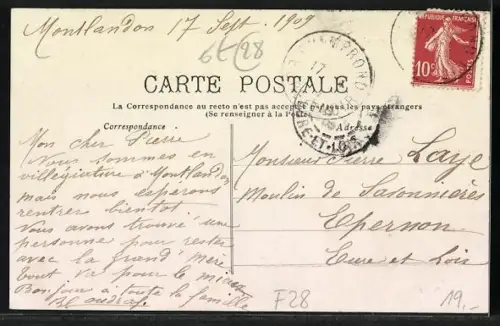 Montlandon 17 Sept. 1909
6E/28
CHAMPROND
17
EURE-ET-LOIR
REPUBLIQUE FRANÇAISE
10c
POSTES
CARTE POSTALE
La Correspondance au recto n'est pas acceptée par tous les pays étrangers
(Se renseigner à la Poste)
Correspondance
Adresse
Mon cher Pierre
Nous sommes en
villégiature à Montlandon
mais nous esperons
rentrer bientot.
Vous avons trouvé une
personne pour rester
avec la grand' mère
tout va pour le mieux
Bonjour à toute la famille
Monsieur Pierre Laye
Moulin de Savonnières
Epernon
Eure et Loir
F28
19,-